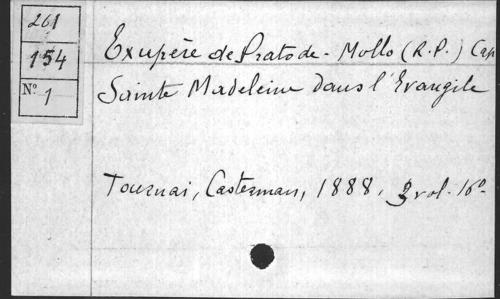 261
154
Nº 1
Exupère de Prats de-Mollo (R.P.) Cap
Sainte Madeleine dans l'Evangile
Tournai, Casterman, 1888, 2 vol. 16º